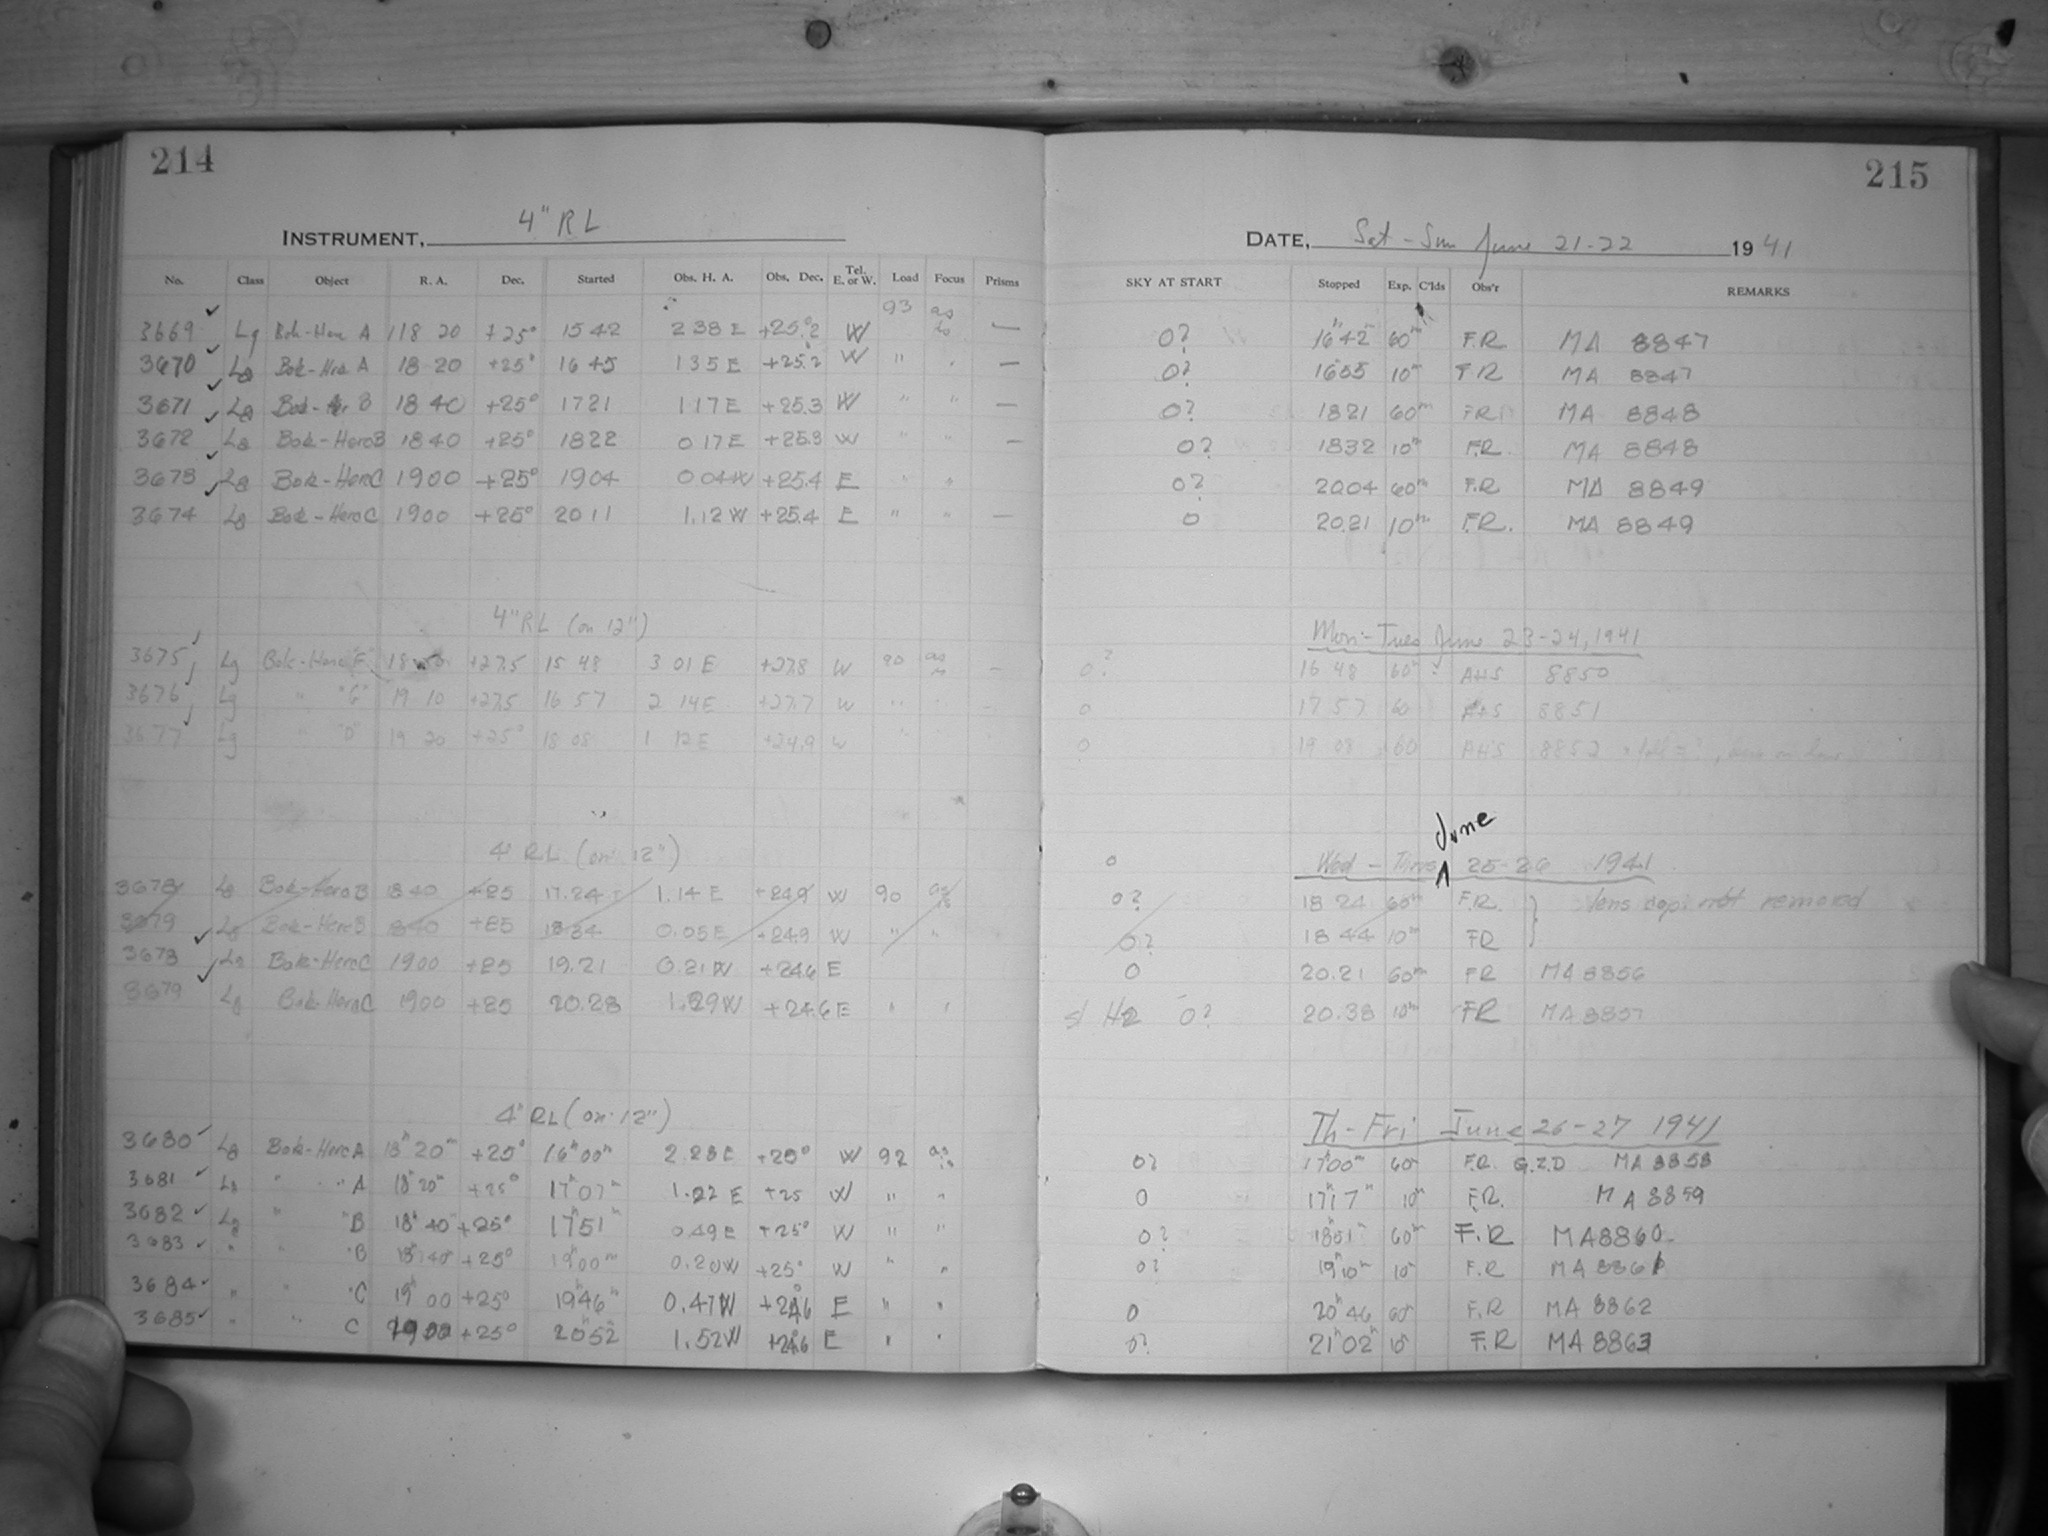 214
INSTRUMENT, 4" RL
No. Class Object R. A. Dec. Started Obs. H. A. Obs. Dec. Tel. E. or W. Load Focus Prisms
93 as
3669 Lg Bok-Herc A 18 20 +25° 15 42 2 38 E +25.2 W is —
3670 Lg Bok-Herc A 18 20 +25° 16 45 1 35 E +25.2 W " " —
3671 Lg Bok- B 18 40 +25° 1721 1 17 E +25.3 W " " —
3672 Lg Bok-Herc B 18 40 +25° 1822 0 17 E +25.3 W " " —
3673 Lg Bok-Herc C 1900 +25° 1904 0 04 W +25.4 E " "
3674 Lg Bok-Herc C 1900 +25° 2011 1.12 W +25.4 E " " —
4" RL (on 12")
3675 Lg Bok-Herc "F" +27.5 15 48 3 01 E +27.8 W 90 as is —
3676 Lg " "G" 19 10 +27.5 16 57 2 14 E +27.7 W " " —
3677 Lg " "D" 19 20 +25° 18 08 1 12 E +24.9 W " "
4" RL (on 12")
3678 Lg Bok-Herc B 18 40 +25 17.24 1.14 E +24.9 W 90 as is
3679 Lg Bok-Herc B 18 40 +25 18 34 0.05 E +24.9 W " "
3678 Lg Bok-Herc C 1900 +25 19.21 0.21 W +24.6 E
3679 Lg Bok-Herc C 1900 +25 20.28 1.29 W +24.6 E " "
4" RL (on 12")
3680 Lg Bok-Herc A 18h 20m +25° 16h 00m 2.28 E +25° W 92 as is
3681 Lg " " A 18h 20m +25° 17h 07m 1.22 E +25 W " "
3682 Lg " "B 18h 40m +25° 17h 51m 0.49 E +25° W " "
3683 " " "B 18h 40m +25° 19h 00m 0.20 W +25° W " "
3684 " " "C 19h 00 +25° 19h 46m 0.47 W +24.6 E " "
3685 " " C 1900 +25° 20h 52 1.52 W +24.6 E " "
215
DATE, Sat-Sun June 21-22 1941
SKY AT START Stopped Exp. C'lds Obs'r REMARKS
0? 16h 42m 60m F.R. MA 8847
0? 1655 10m F.R MA 8847
0? 1821 60m FR MA 8848
0? 1832 10m F.R. MA 8848
0? 2004 60m F.R MA 8849
0 20.21 10m F.R. MA 8849
Mon-Tues June 23-24, 1941
0? 16 48 60m AHS 8850
0 17 57 60 AHS 8851
0 19 08 60 AHS 8852
June
0 Wed - Thurs 25-26 1941
0? 18 24 60m F.R. } lens cap not removed
0? 18 44 10m FR
0 20.21 60m FR MA 8856
s/ Hz 0? 20.38 10m FR MA 8857
Th-Fri June 26-27 1941
0? 17h 00m 60m F.R. G.Z.D MA 8858
0 17h 17m 10m F.R. MA 8859
0? 18 51 60m F.R MA 8860
0? 19h 10m 10m F.R MA 8861
0 20h 46 60m F.R MA 8862
0? 21h 02m 10m F.R MA 8863